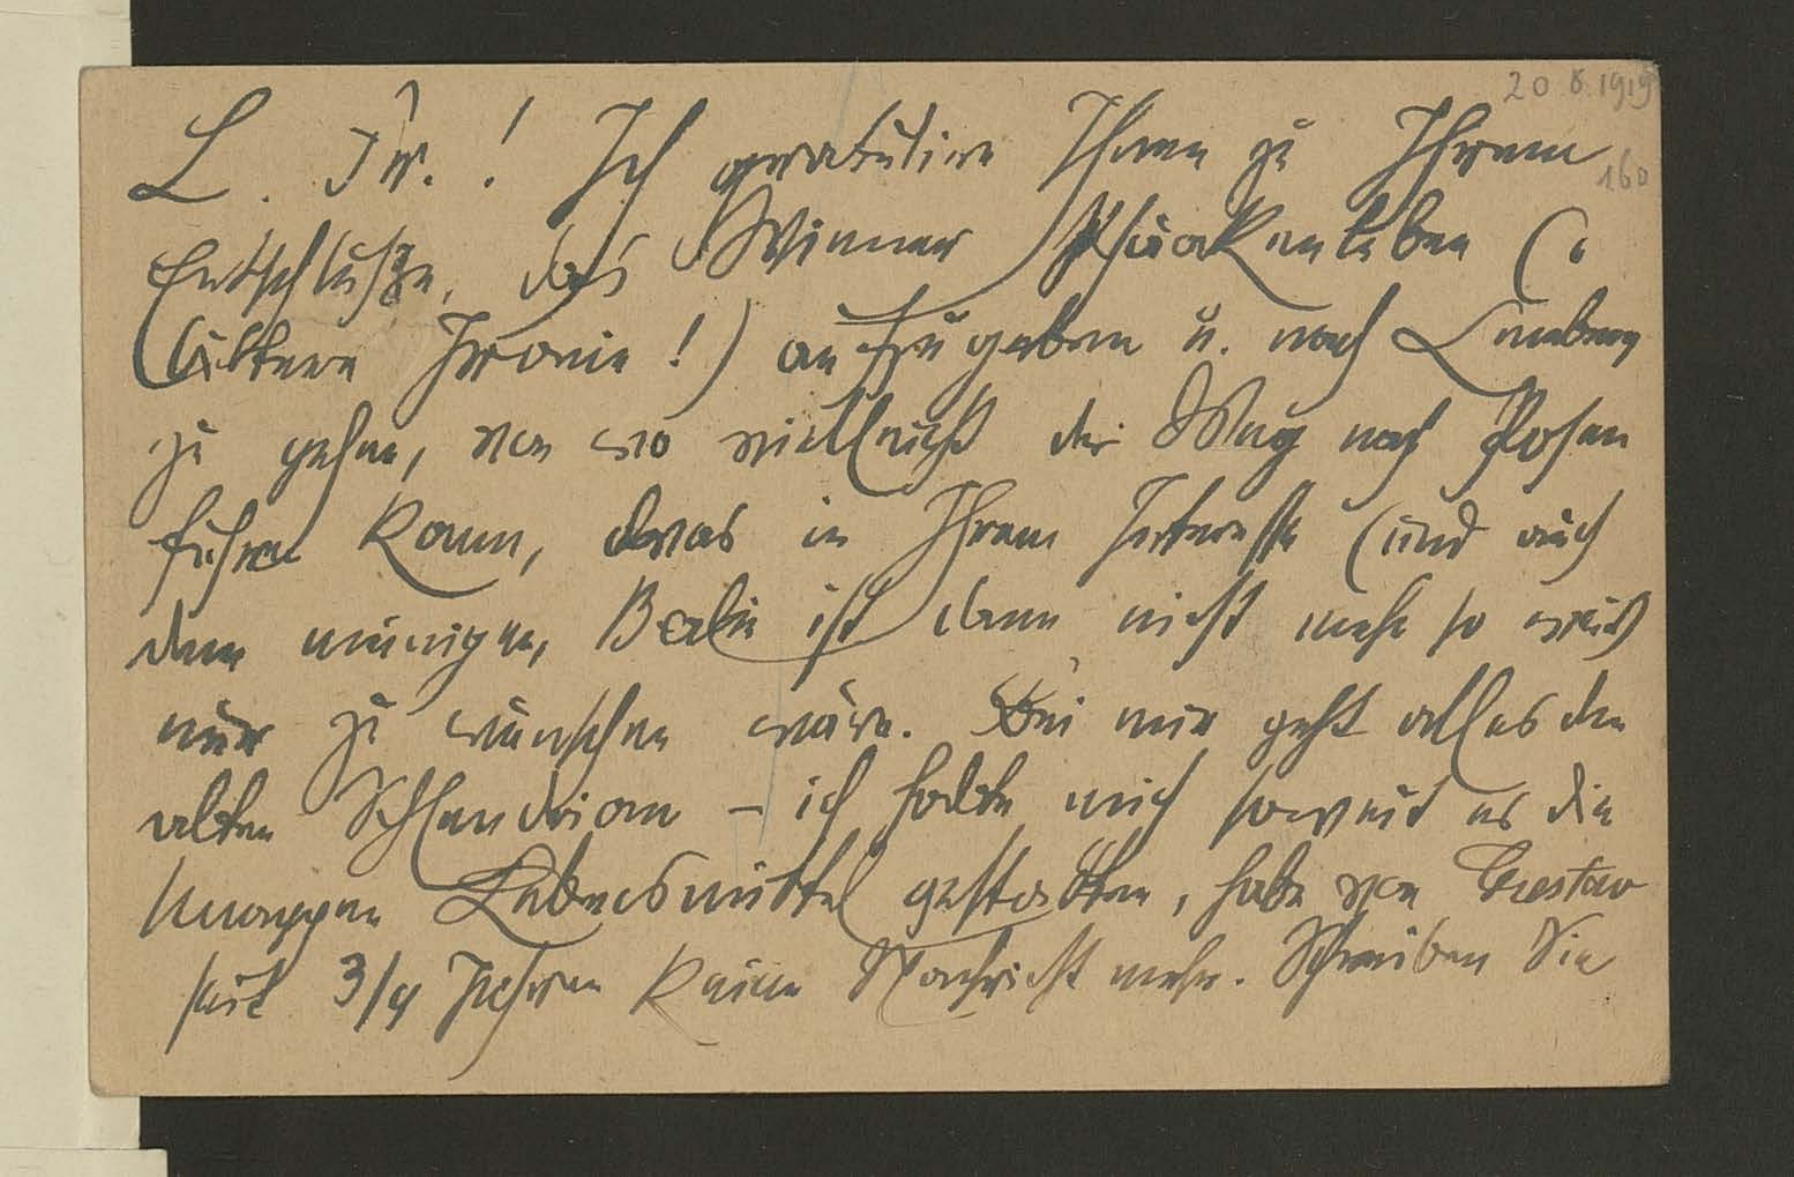 20 8. 1919
L. Fr.! Ich gratuliere Ihnen zu Ihrem
160
Entschluße, das Wiener Phäakenleben (o
bittere Ironie!) aufzugeben u. nach Lemberg
zu gehen, von wo vielleicht der Weg nach Posen
führen kann, etwas in Ihrem Interesse (und auch
dem meinigen, Berlin ist dann nicht mehr so weit)
nur zu wünschen wäre. Bei mir geht alles den
alten Schlendrian – ich halte mich soweit es die
knappen Lebensmittel gestatten, habe von Gustav
seit 3/4 Jahren keine Nachricht mehr. Schreiben Sie